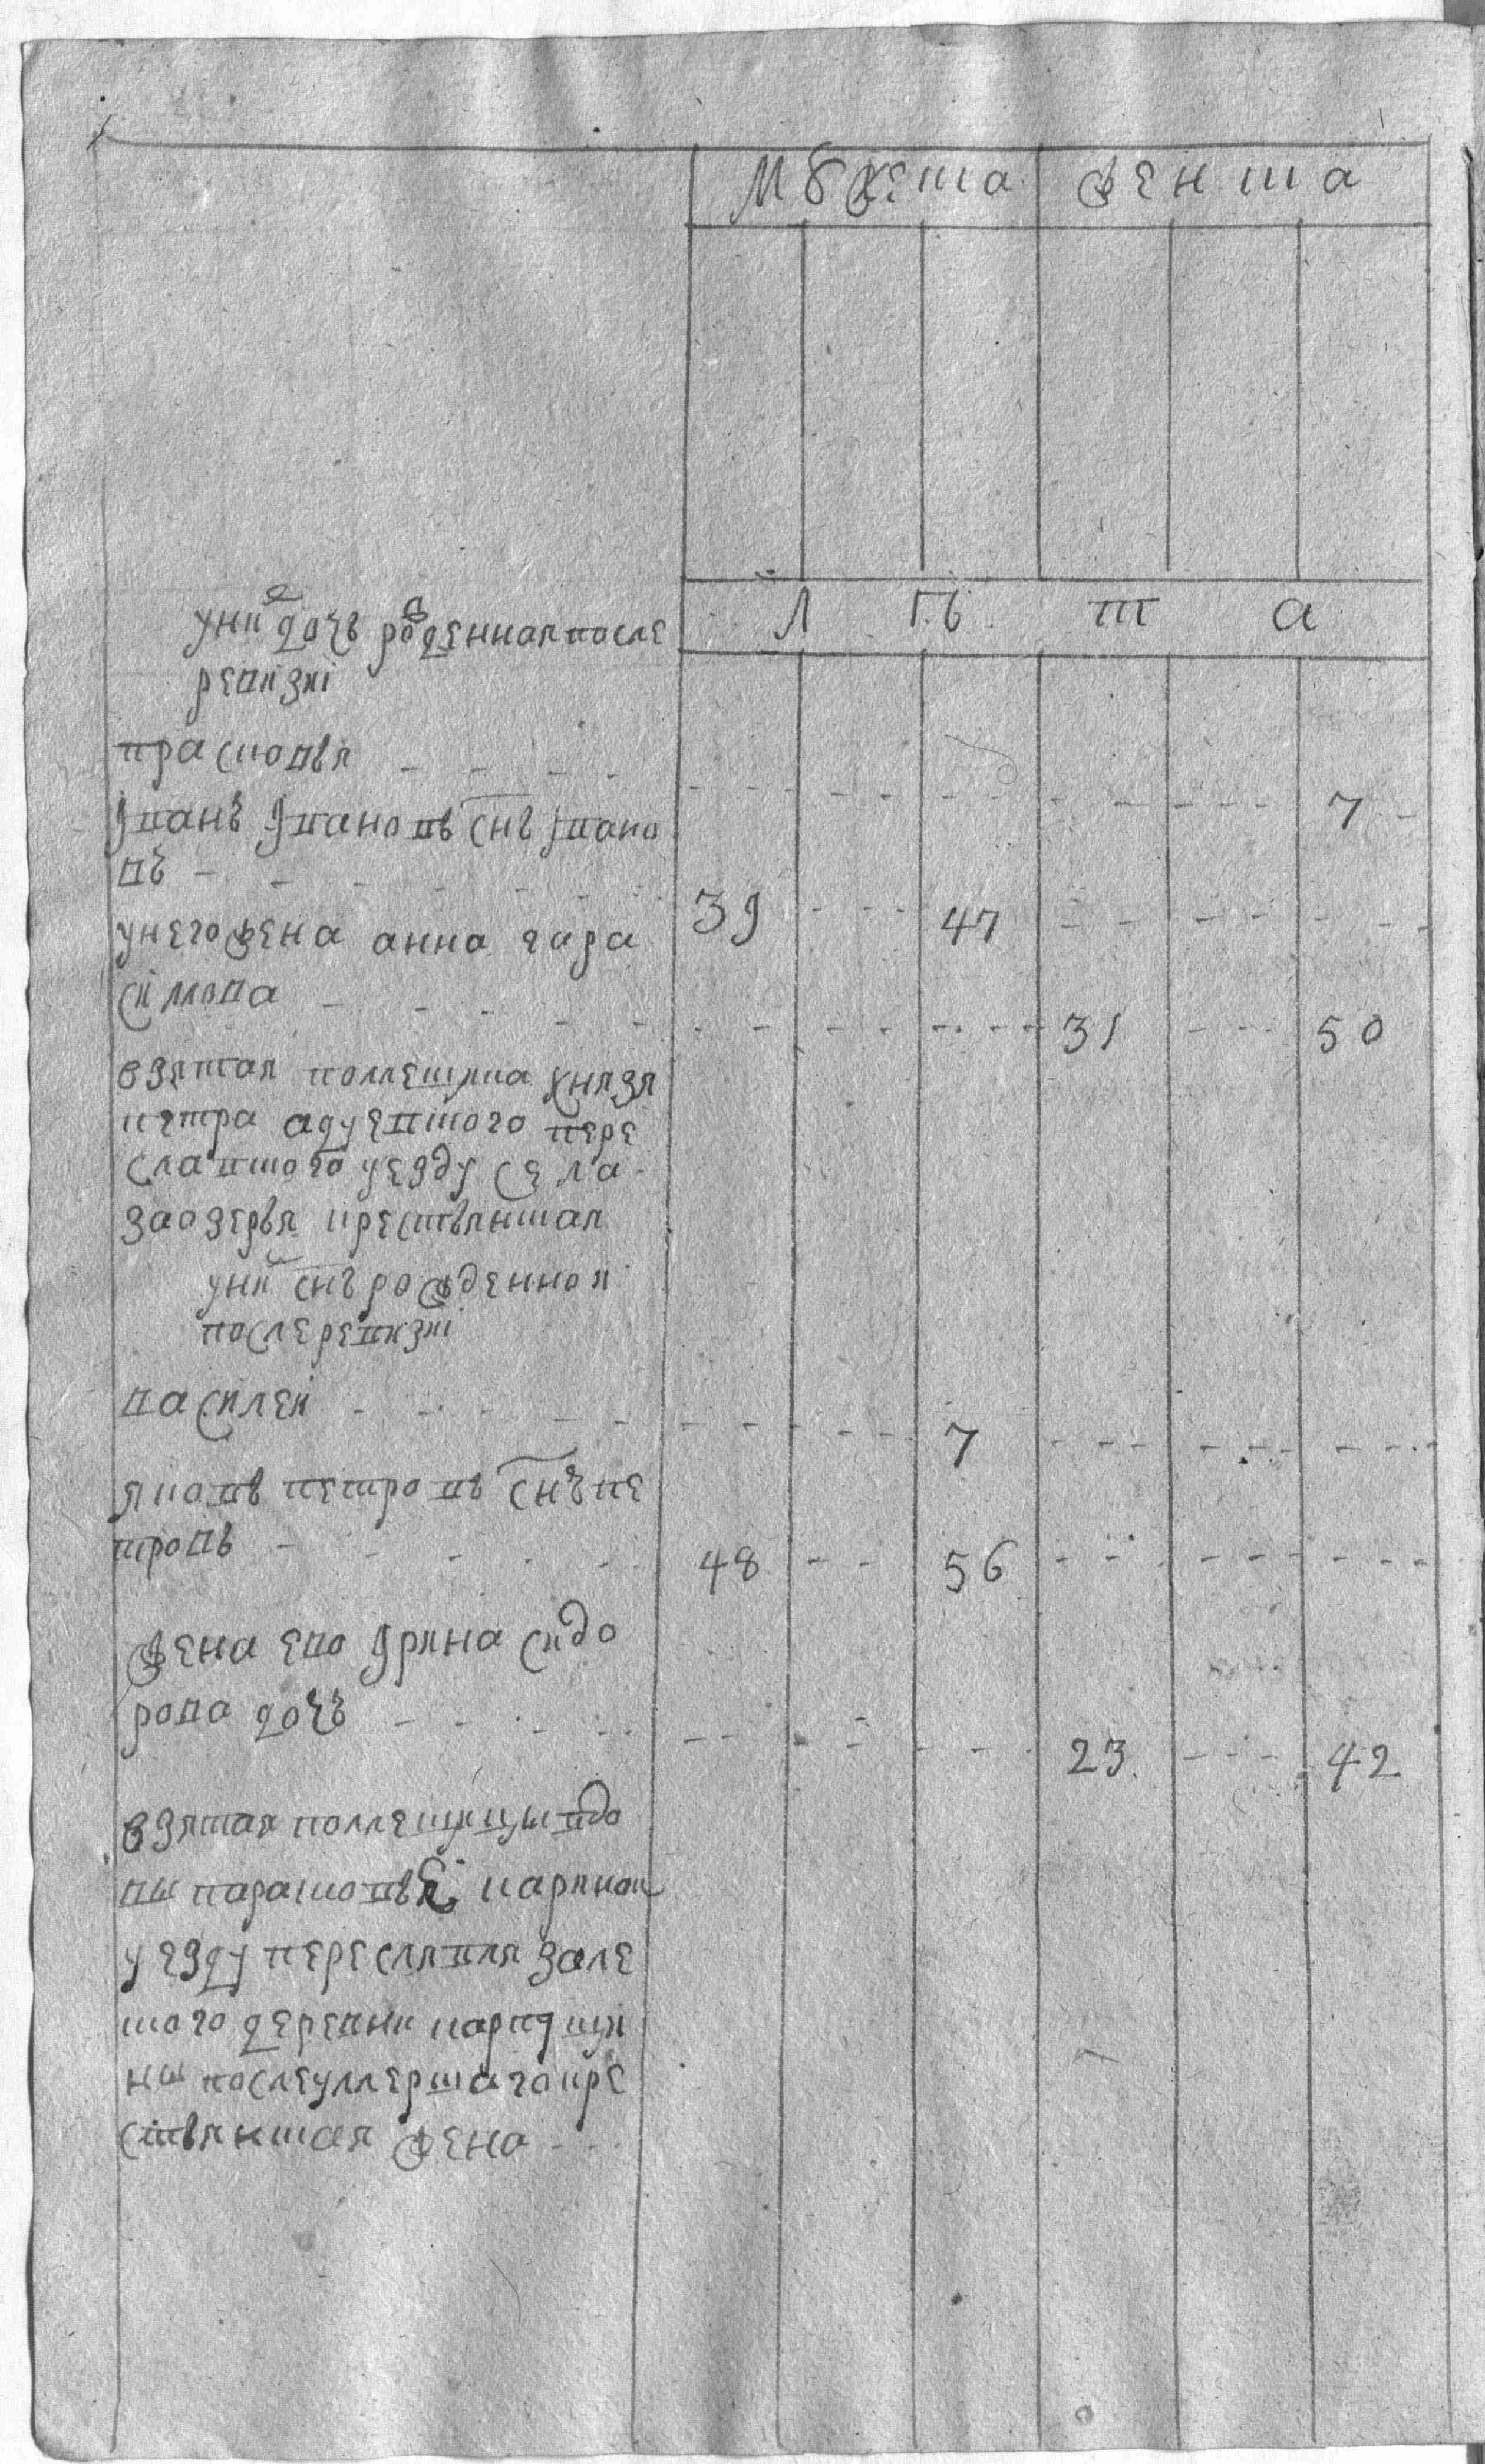 мужеска женска
лѣ та
у них дочь рожденная после
ревизиі
прасковья - - - - 7
Иванъ Ивановъ снъ Ивано
въ - - - 39 - - - 47
у него жена анна гара
симова - - - 31 - - - 50
взятая помещика князя
петра
славского уезду села
заозерья крестьянская
у них снъ рожденнои
после ревизиі
василеи - - - 7
яковъ петровъ снъ пе
тровъ - - - 48 - - 56
жена ево Ирина сидо
рова дочь - - - 23 - - - 42
взятая помещицы вдо
вы
уезду переславля зале
ского деревни
ны после умершаго кре
стьянская жена